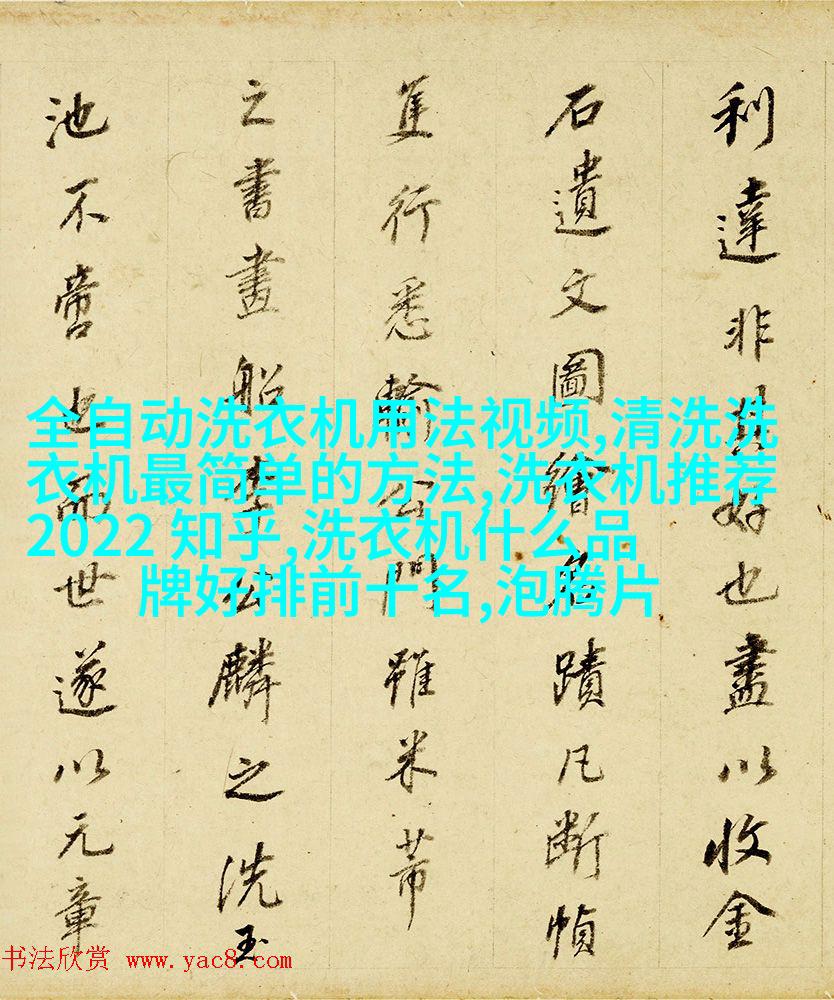 利達非其好也盡以收金
石遺文圖繪名蹟凡斷幀
隻行悉輸公門雖米芾
之書畫船李公麟之洗玉
池不啻也而世遂以元章
全自动洗衣机用法视频,清洗洗
衣机最简单的方法,洗衣机推荐
2022 知乎,洗衣机什么品
牌好排前十名,泡腾片
书法欣赏 www.yac8.com